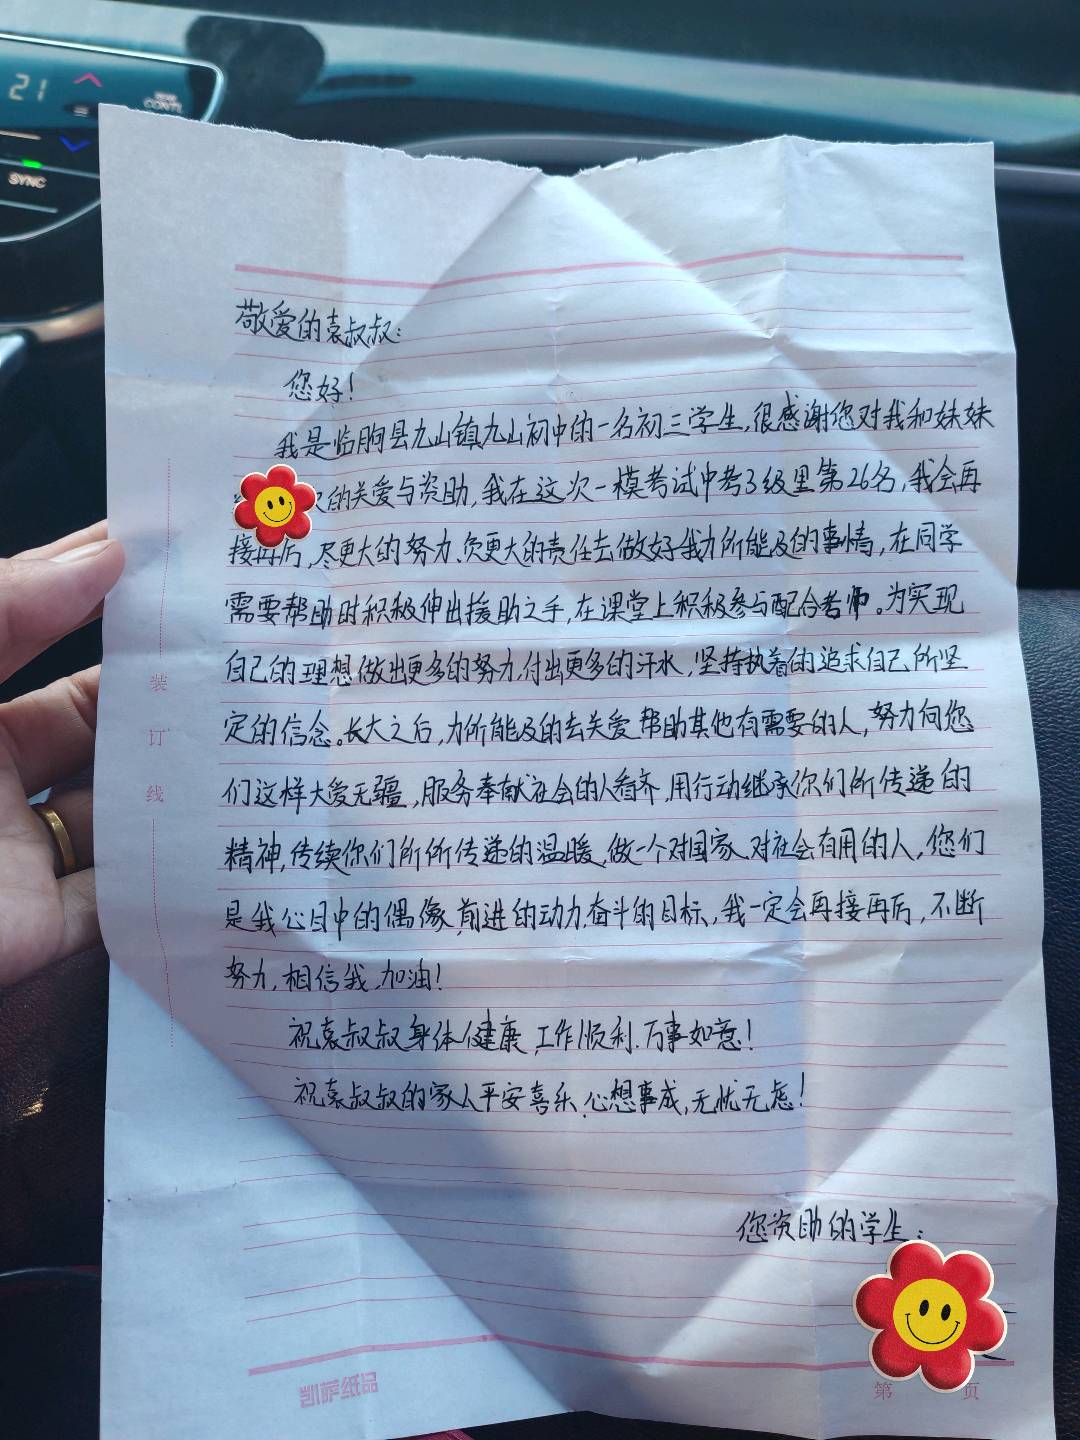 21
SYNC
敬爱的袁叔叔:
您好!
我是临朐县九山镇九山初中的一名初三学生,很感谢您对我和妹妹
的关爱与资助,我在这次一模考试中考了级里第26名,我会再
接再厉,尽更大的努力、负更大的责任去做好我力所能及的事情,在同学
需要帮助时积极伸出援助之手,在课堂上积极参与配合老师。为实现
自己的理想做出更多的努力,付出更多的汗水,坚持执着的追求自己所坚
定的信念。长大之后,力所能及的去关爱帮助其他有需要的人,努力向您
们这样大爱无疆,服务奉献社会的人看齐,用行动继承你们所传递的
精神,传续你们所所传递的温暖,做一个对国家、对社会有用的人,您们
是我心目中的偶像,前进的动力,奋斗的目标,我一定会再接再厉,不断
努力,相信我,加油!
祝袁叔叔身体健康,工作顺利,万事如意!
祝袁叔叔的家人平安喜乐,心想事成,无忧无虑!
您资助的学生:
装
订
线
第 页